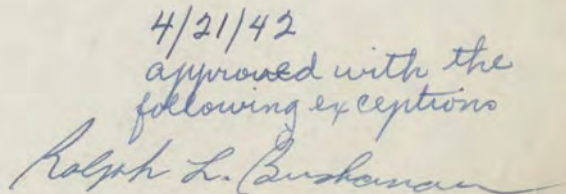 4/21/42
approved with the
following exceptions
Ralph L. Buchanan